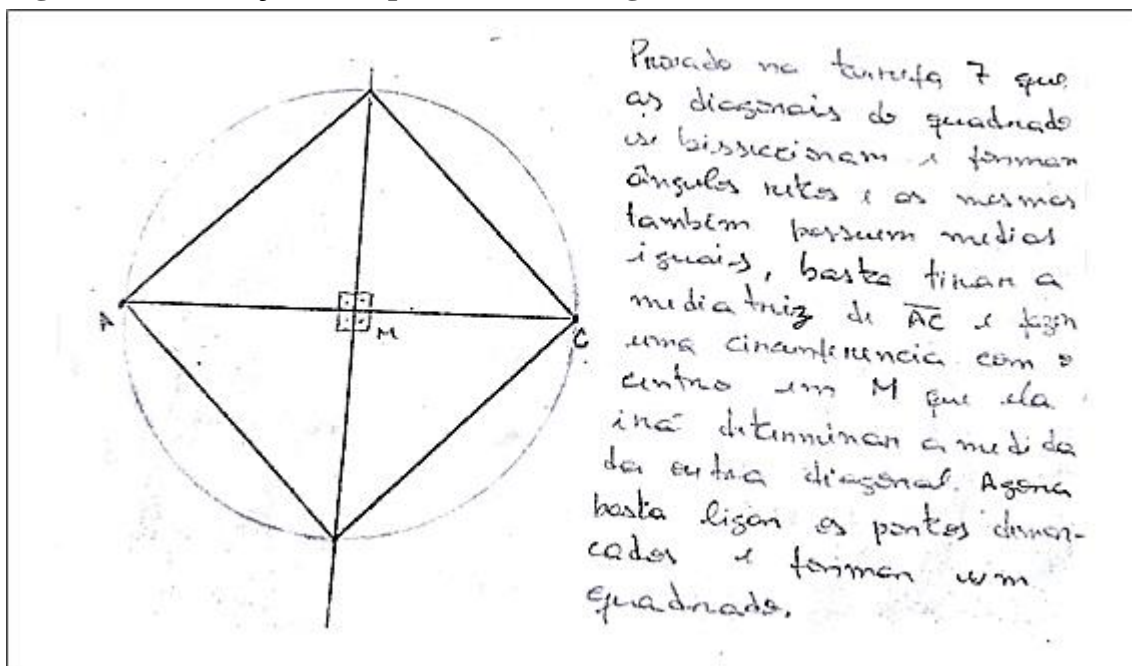 A
M
C
Provado na tarefa 7 que
as diagonais do quadrado
se bisseccionam e formam
ângulos retos e as mesmas
também possuem medidas
iguais, basta tirar a
mediatriz de AC e fazer
uma circunferencia com o
centro em M que ela
irá determinar a medida
da outra diagonal. Agora
basta ligar os pontos demar-
cados e formar um
quadrado.